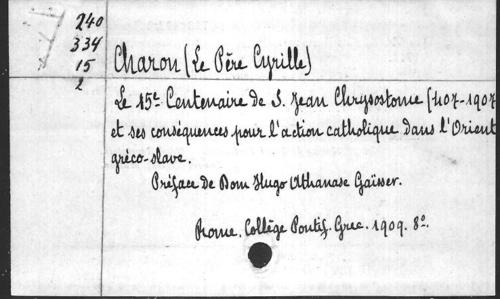 240
334
15
2
Charon (Le Père Cyrille)
Le 15e Centenaire de S. Jean Chrysostome (407-1907
et ses conséquences pour l'action catholique dans l'Orient
gréco-slave.
Préface de Dom Hugo Athanase Gaïsser.
Rome. Collège Pontif. Grec. 1909. 8º.